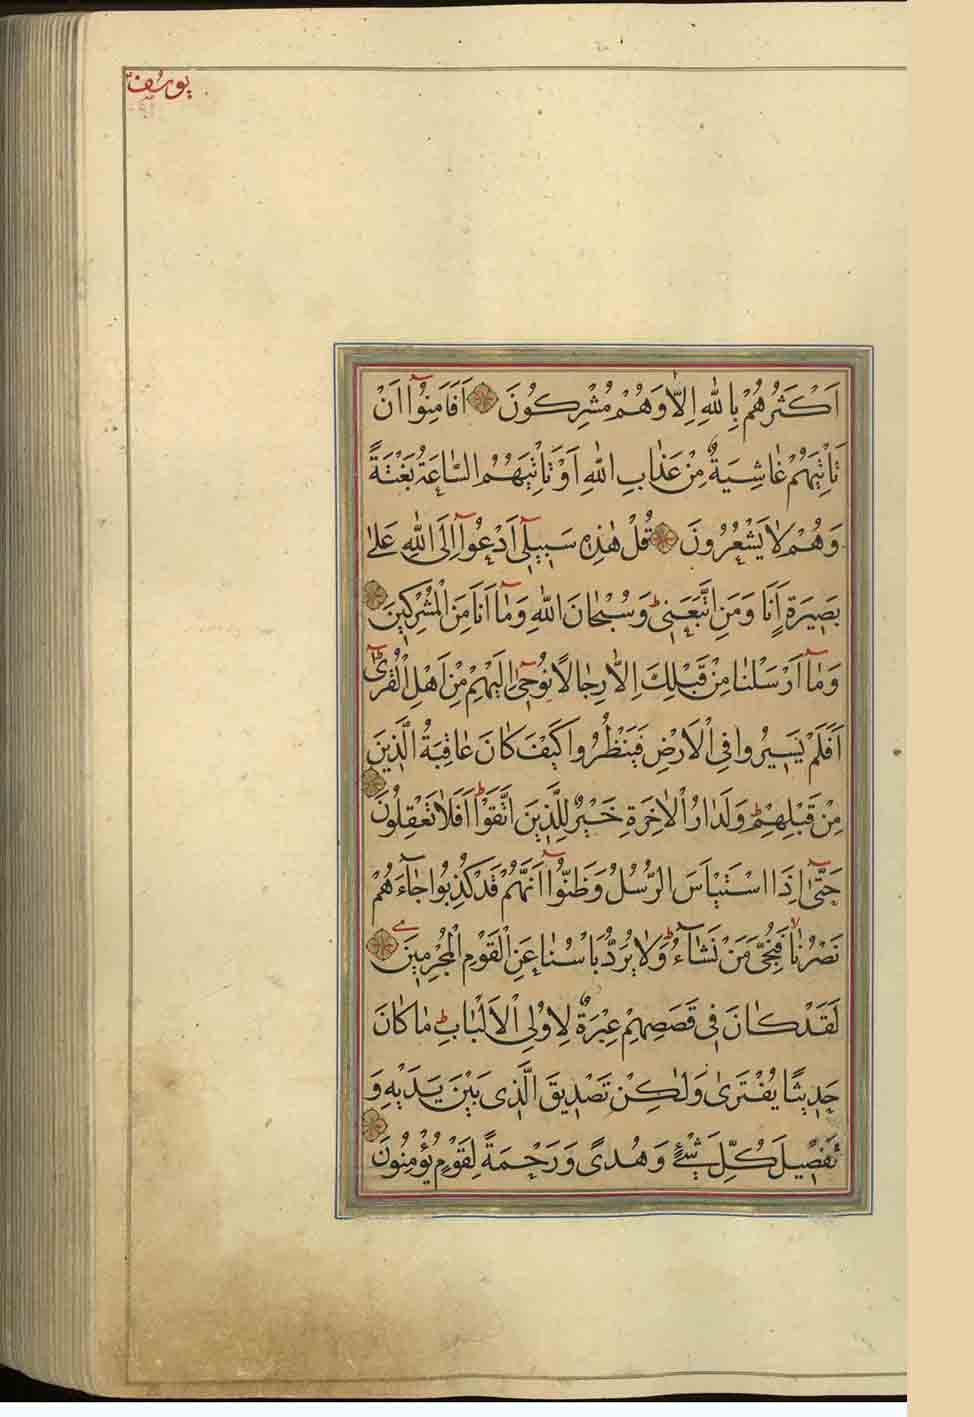 يوسف
اَكْثَرُهُمْ بِاللّٰهِ اِلَّا وَهُمْ مُشْرِكُونَ اَفَاَمِنُوٓا اَنْ
تَاْتِيَهُمْ غَاشِيَةٌ مِنْ عَذَابِ اللّٰهِ اَوْ تَاْتِيَهُمُ السَّاعَةُ بَغْتَةً
وَهُمْ لَا يَشْعُرُونَ قُلْ هٰذِهِ سَبِيلٖٓى اَدْعُوٓا اِلَى اللّٰهِ عَلٰى
بَصِيرَةٍ اَنَا وَمَنِ اتَّبَعَنِى ط وَسُبْحَانَ اللّٰهِ وَمَٓا اَنَا مِنَ الْمُشْرِكِينَ
وَمَٓا اَرْسَلْنَا مِنْ قَبْلِكَ اِلَّا رِجَالًا نُوحِٓى اِلَيْهِمْ مِنْ اَهْلِ الْقُرٰى ط
اَفَلَمْ يَسِيرُوا فِى الْاَرْضِ فَيَنْظُرُوا كَيْفَ كَانَ عَاقِبَةُ الَّذِينَ
مِنْ قَبْلِهِمْ ط وَلَدَارُ الْاٰخِرَةِ خَيْرٌ لِلَّذِينَ اتَّقَوْا ط اَفَلَا تَعْقِلُونَ
حَتّٰٓى اِذَا اسْتَيْاَسَ الرُّسُلُ وَظَنُّوٓا اَنَّهُمْ قَدْ كُذِبُوا جَٓاءَهُمْ
نَصْرُنَا لا فَنُجِّىَ مَنْ نَشَٓاءُ ط وَلَا يُرَدُّ بَاْسُنَا عَنِ الْقَوْمِ الْمُجْرِمِينَ
لَقَدْ كَانَ فِى قَصَصِهِمْ عِبْرَةٌ لِاُولِى الْاَلْبَابِ ط مَا كَانَ
حَدِيثًا يُفْتَرٰى وَلٰكِنْ تَصْدِيقَ الَّذِى بَيْنَ يَدَيْهِ وَ
تَفْصِيلَ كُلِّ شَيْءٍ وَهُدًى وَرَحْمَةً لِقَوْمٍ يُؤْمِنُونَ